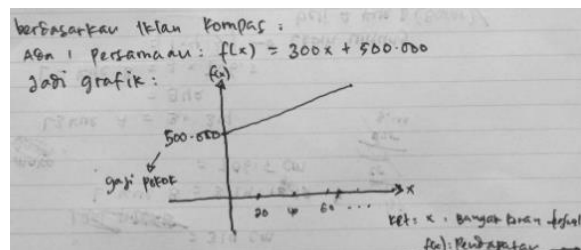 berdasarkan Iklan Kompas :
Ada 1 persamaan : f(x) = 300x + 500.000
Jadi grafik :
f(x)
500.000
gaji pokok
x
20 40 60 ...
Ket : x : Banyak koran
f(x) : Pendapatan